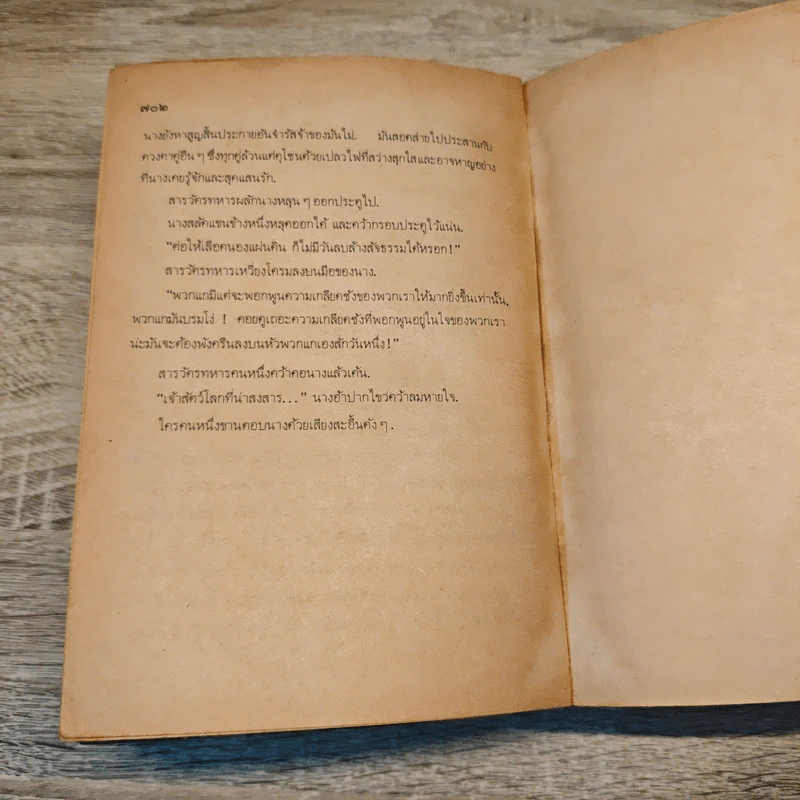 ๗๐๒
นางยังหาสูญสิ้นประกายอันจำรัสจ้าของมันไม่. มันสอดส่ายไปประสานกับ
ดวงตาคู่อื่น ๆ ซึ่งทุกคู่ล้วนแต่คุโชนด้วยเปลวไฟที่สว่างสุกใสและอาจหาญอย่าง
ที่นางเคยรู้จักและสุดแสนรัก.
สารวัตรทหารผลักนางหลุน ๆ ออกประตูไป.
นางสลัดแขนข้างหนึ่งหลุดออกได้ และคว้ากรอบประตูไว้แน่น.
“ต่อให้เลือดนองแผ่นดิน ก็ไม่มีวันลบล้างสัจธรรมได้หรอก!”
สารวัตรทหารเหวี่ยงโครมลงบนมือของนาง.
“พวกแกมีแต่จะพอกพูนความเกลียดชังของพวกเราให้มากยิ่งขึ้นเท่านั้น,
พวกแกมันบรมโง่ ! คอยดูเถอะความเกลียดชังที่พอกพูนอยู่ในใจของพวกเรา
น่ะมันจะต้องพังครืนลงบนหัวพวกแกเองสักวันหนึ่ง!”
สารวัตรทหารคนหนึ่งคว้าคอนางแล้วเค้น.
“เจ้าสัตว์โลกที่น่าสงสาร...” นางอ้าปากไขว่คว้าลมหายใจ.
ใครคนหนึ่งขานตอบนางด้วยเสียงสะอื้นดัง ๆ.